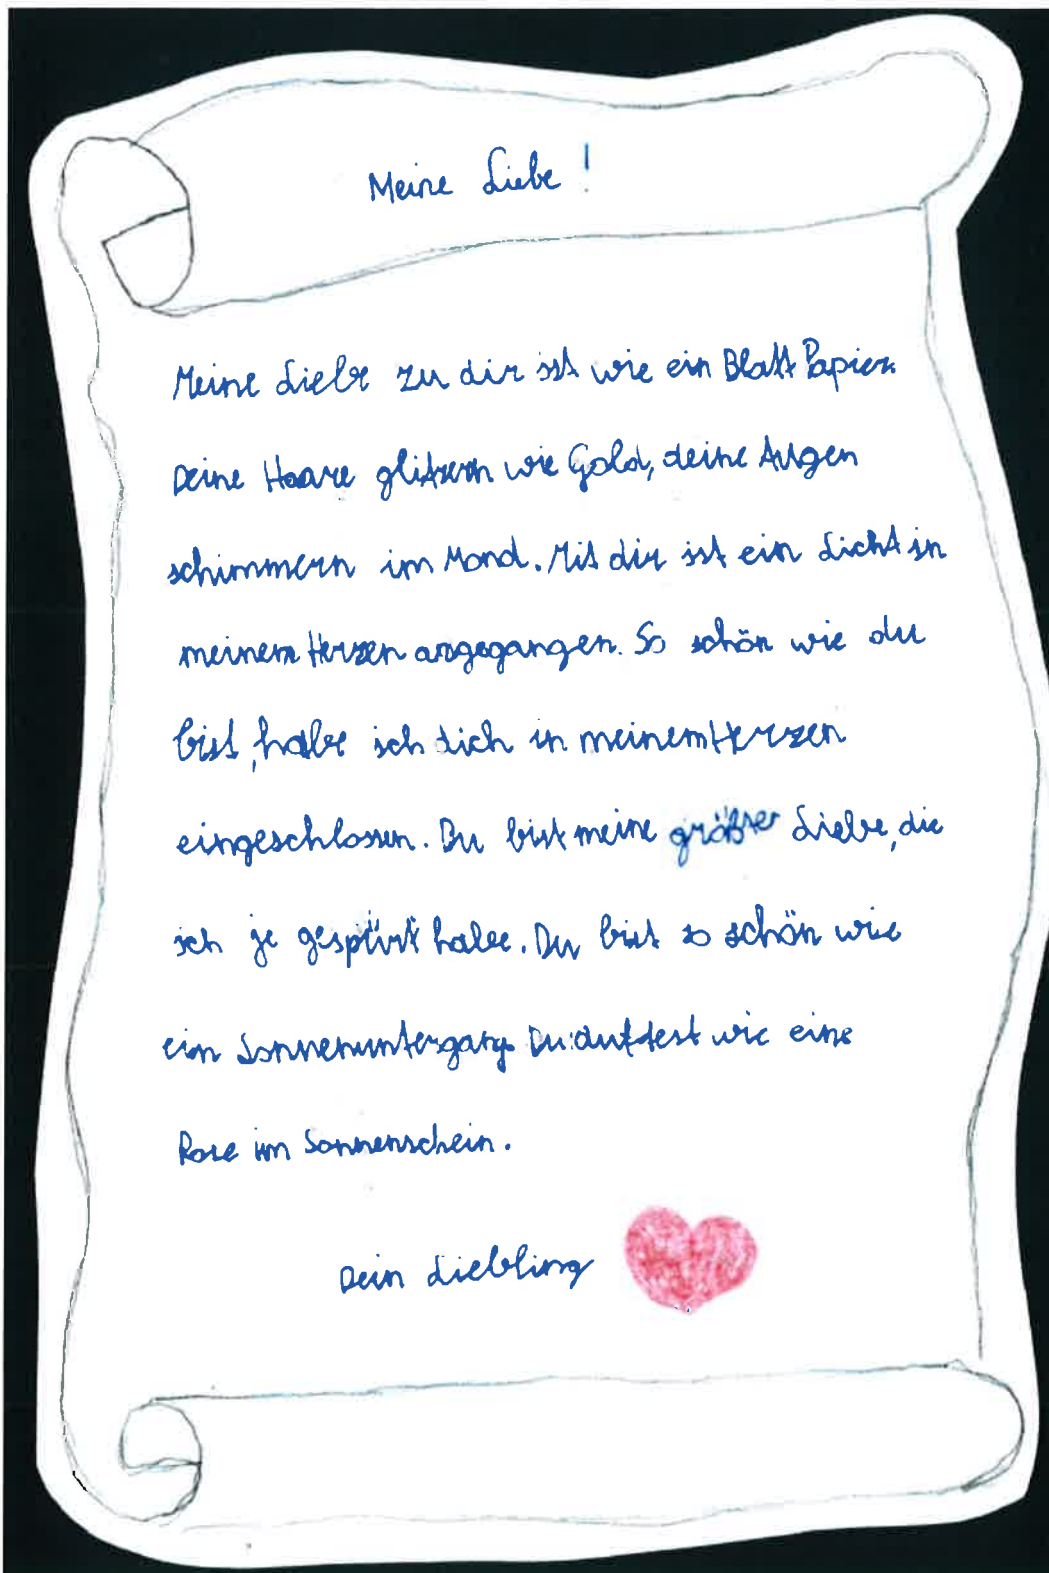 Meine Liebe!
Meine Liebe zu dir ist wie ein Blatt Papier.
Deine Haare glitzern wie Gold, deine Augen
schimmern im Mond. Mit dir ist ein Licht in
meinem Herzen angegangen. So schön wie du
bist, habe ich dich in meinem Herzen
eingeschlossen. Du bist meine größter Liebe, die
ich je gespürt habe. Du bist so schön wie
ein Sonnenuntergang. Du duftest wie eine
Rose im Sonnenschein.
Dein Liebling